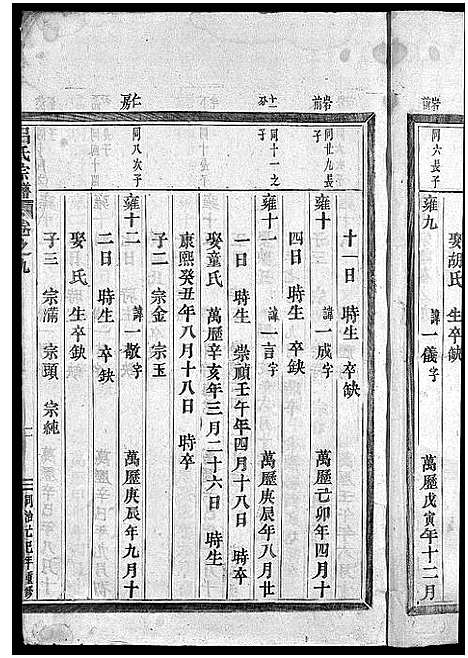 岩前
同六長子
雍九 諱一儀字 萬歷戊寅年十二月
娶胡氏 生卒缺
十一日 時生 卒缺
岩前
同廿九長子
雍十 諱一成字 萬歷己卯年四月十
四日 時生 卒缺
同十一之子
雍十一 諱一言字 萬歷庚辰年八月廿
一日 時生 崇禎壬午年四月十八日 時卒
娶童氏 萬歷辛亥年三月二十六日 時生
康熙癸丑年八月十八日 時卒
子二 宗金 宗玉
仁房
同八次子
雍十二 諱一敬字 萬歷庚辰年九月十
二日 時生 卒缺
娶 氏 生卒缺
子三 宗滿 宗頭 宗純
呂氏宗譜 卷之九 二 同治元年重修